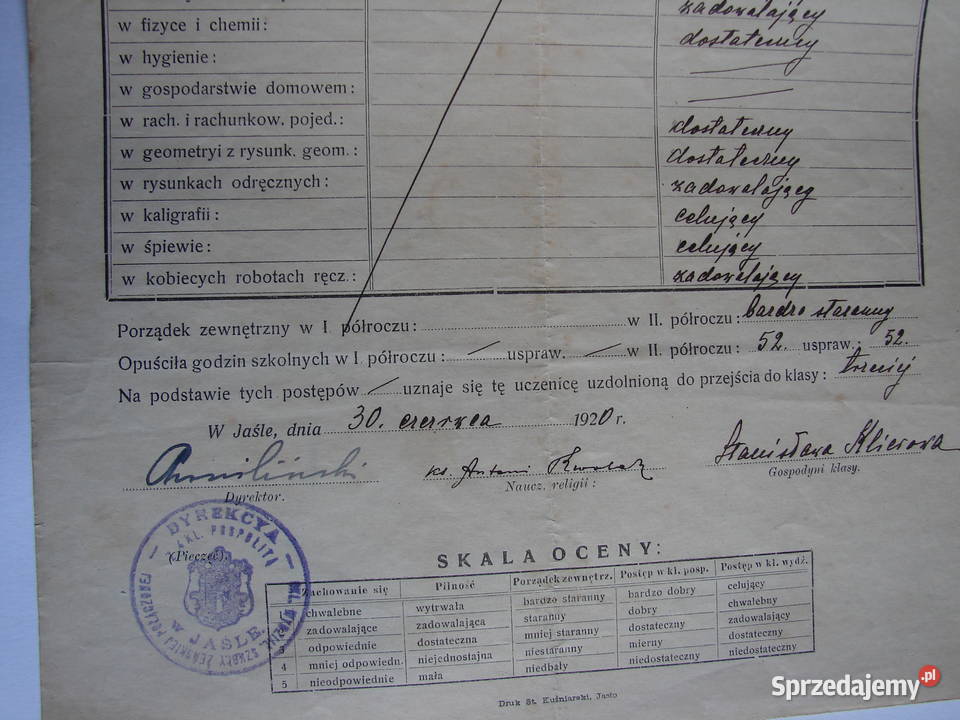 zadowalający
w fizyce i chemii: dostateczny
w hygienie:
w gospodarstwie domowem:
w rach. i rachunkow. pojed.: dostateczny
w geometryi z rysunk. geom.: dostateczny
w rysunkach odręcznych: zadowalający
w kaligrafii: celujący
w śpiewie: celujący
w kobiecych robotach ręcz.: zadowalający
Porządek zewnętrzny w I półroczu: w II. półroczu: bardzo staranny
Opuściła godzin szkolnych w I półroczu: / uspraw. / w II. półroczu: 52. uspraw.: 52.
Na podstawie tych postępów / uznaje się tę uczenicę uzdolnioną do przejścia do klasy: trzeciej
W Jaśle, dnia 30. czerwca 1920 r.
ks. Antoni Stanisława
Dyrektor. Naucz. religii: Gospodyni klasy.
(Pieczęć).
DYREKCYA
KL. POSPOLITA
W JAŚLE
SZKOŁY ŻEŃSKIEJ POŁĄCZONEJ
SKALA OCENY:
Zachowanie się Pilność Porządek zewnętrz. Postęp w kl. posp. Postęp w kl. wydź.
1 chwalebne wytrwała bardzo staranny bardzo dobry celujący
zadowalające zadowalająca staranny dobry chwalebny
3 odpowiednie dostateczna mniej staranny dostateczny zadowalający
4 mniej odpowiedn. niejednostajna niestaranny mierny dostateczny
5 nieodpowiednie mała niedbały niedostateczny niedostateczny
Druk St. Kuśniarski, Jasło
Sprzedajemy.pl